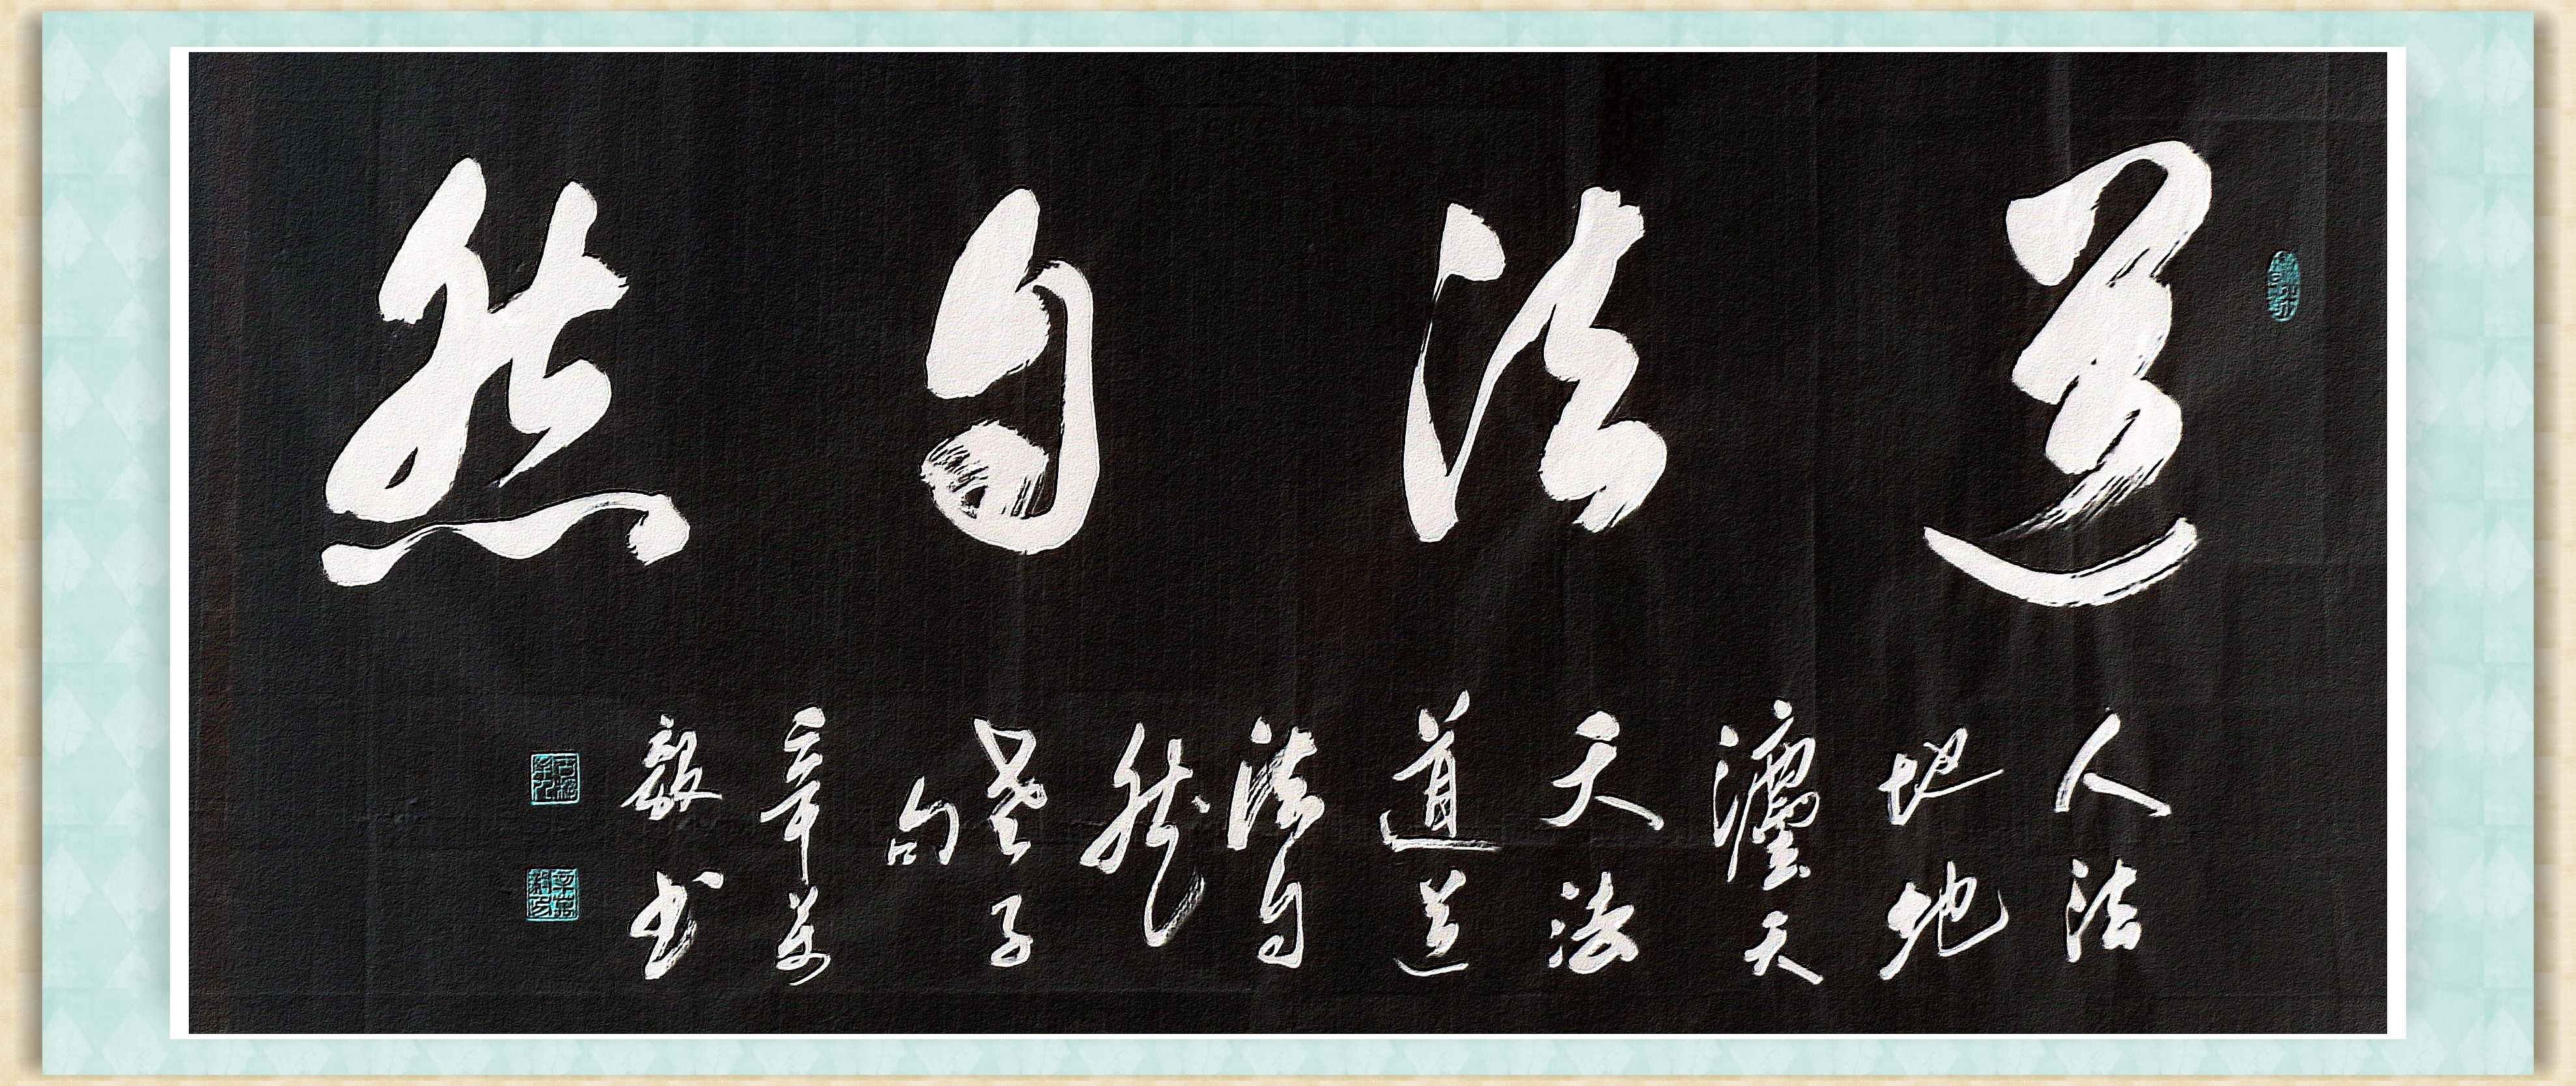 道法自然
人法
地地
灋天
天法
道道
法自
然
老子
句
辛
毅书